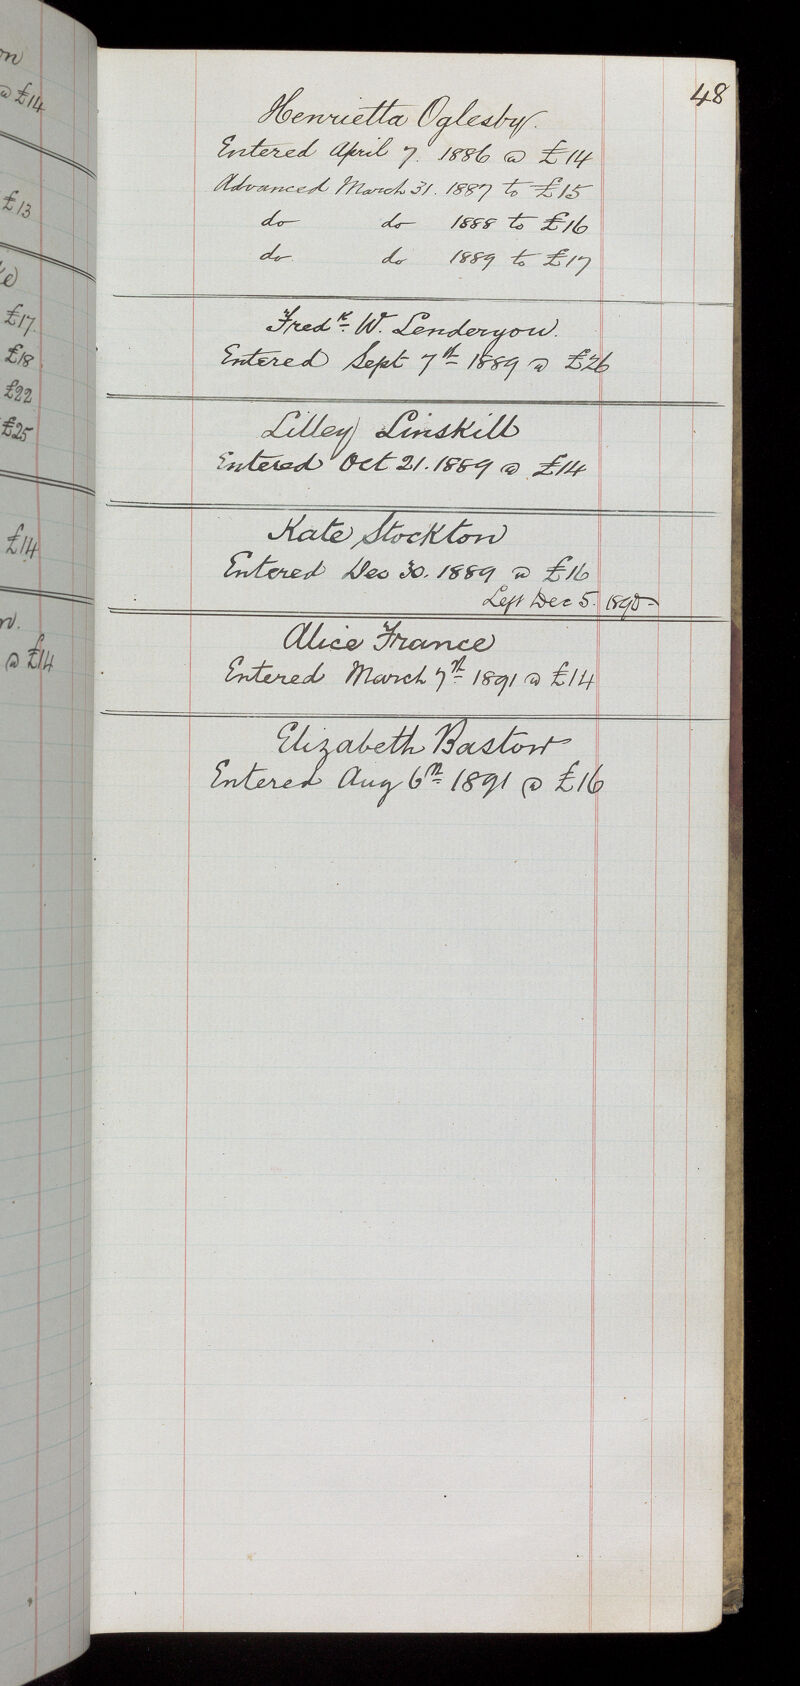 on
@ £14
£13
£17
£18
£22
£25
£14
@ £14
48
Henrietta Oglesby.
Entered April 7. 1886 @ £14
Advanced March 31. 1887 to £15
do do 1888 to £16
do do 1889 to £17
Fredk. W. Lenderyou.
Entered Sept 7th 1889 @ £26
Lilley Linskill
Entered Oct 21. 1889 @ £14
Kate Stockton
Entered Dec 30. 1889 @ £16
Left Dec 5. 1890
Alice France
Entered March 7th 1891 @ £14
Elizabeth Bastow
Entered Aug 6th 1891 @ £16